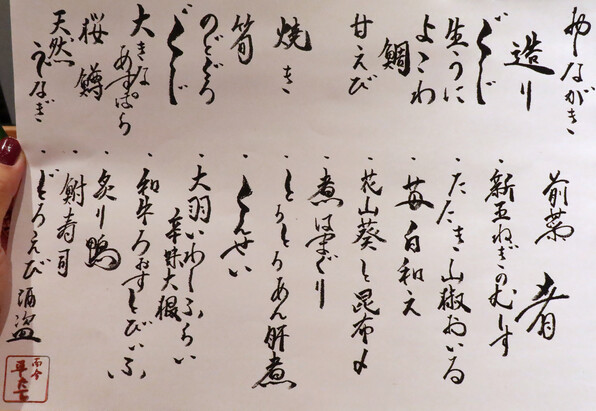 おしながき
造り
ぐじ
生うに
よこわ
鯛
甘えび
焼き
筍
のどぐろ
ぐじ
大きなあすぱら
桜鱒
天然うなぎ
前菜 肴
・新玉ねぎのむーす
・たたき山椒おいる
・苺白和え
・花山葵と昆布〆
・煮はまぐり
・とろとろあん肝煮
・くんせい
・大羽いわしふらい
辛味大根
・和牛ろおすとびいふ
・炙り鴨
・鮒寿司
・どろえび酒盗
而今